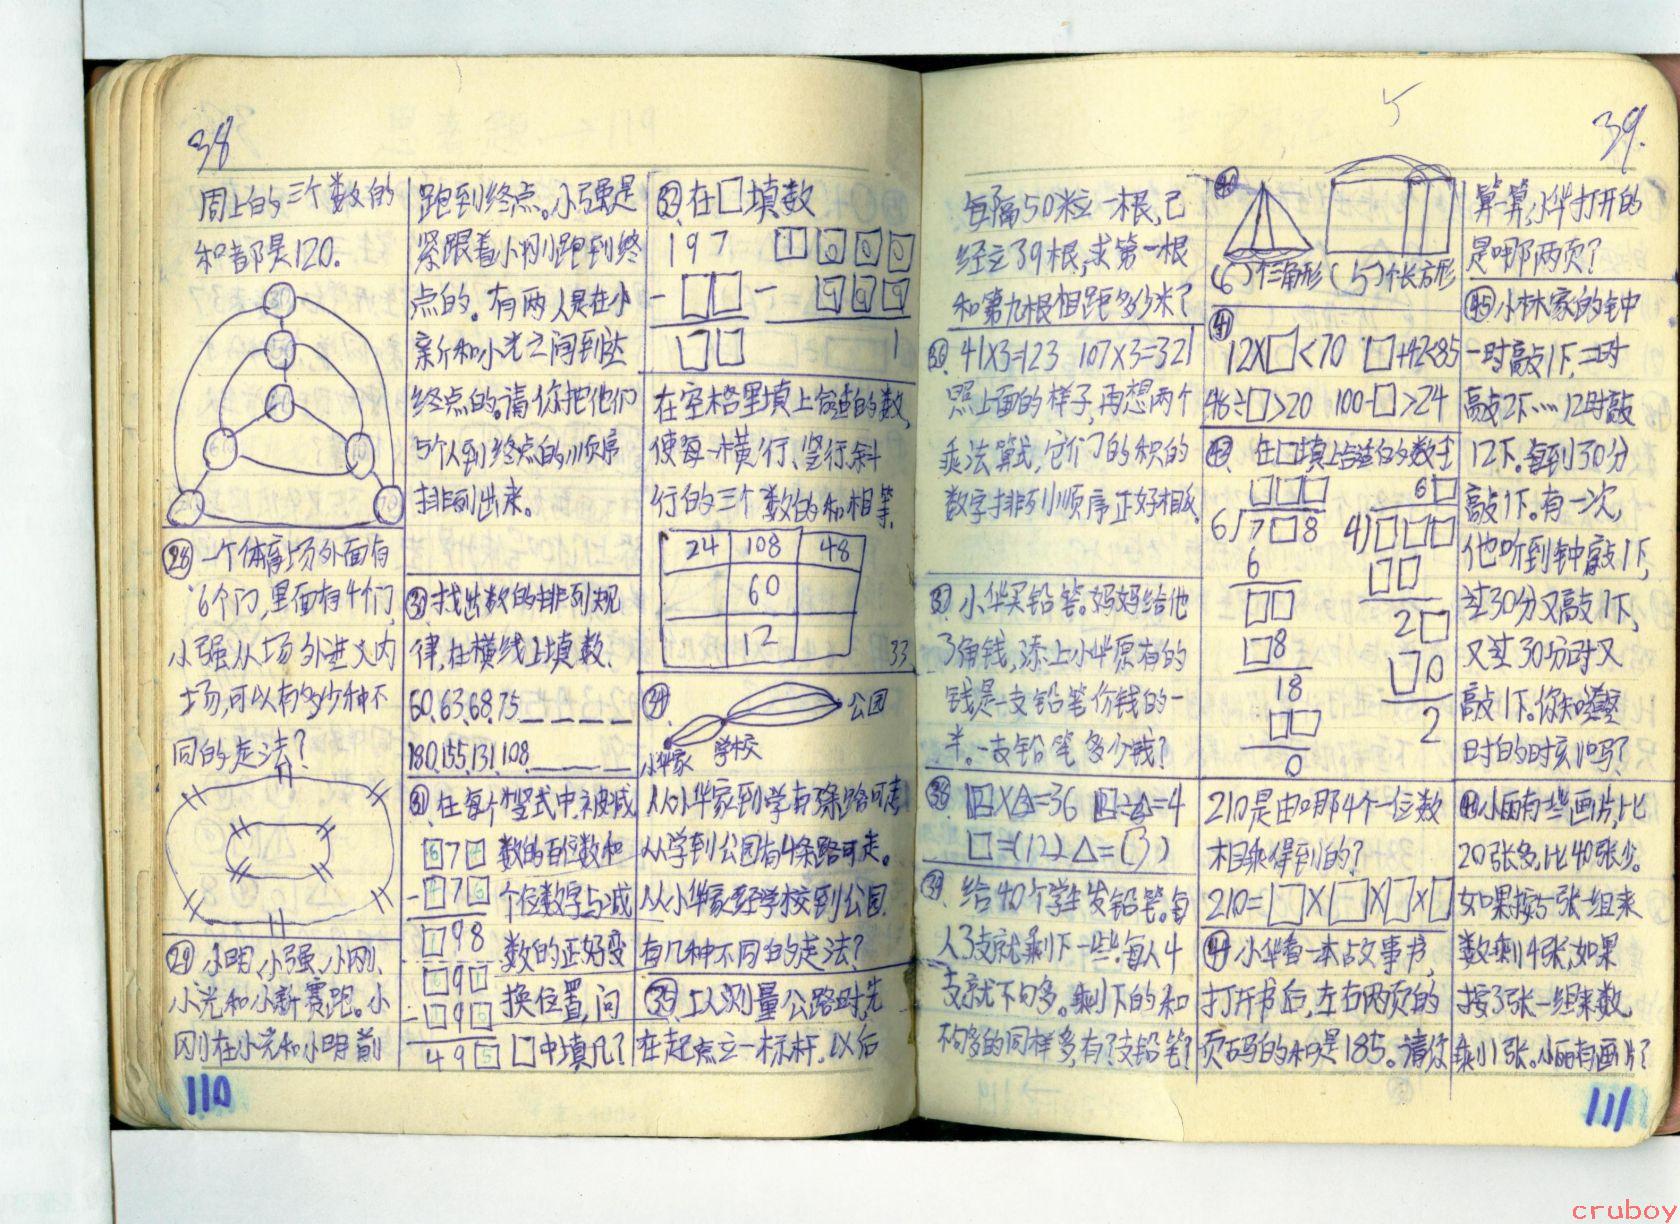 38
周上的三个数的
和都是120.
㉘一个体育场外面有
6个门,里面有4个门,
小强从场外进入内
场,可以有多少种不
同的走法?
㉙小明、小强、小刚、
小光和小新赛跑。小
刚在小光和小明前
110
跑到终点。小强是
紧跟着小刚跑到终
点的。有两人是在小
新和小光之间到达
终点的。请你把他们
5个人到终点的顺序
排列出来。
㉚找出数的排列规
律,在横线上填数、
60、63、68、75、__ __ __ __
180、155、131、108、__ __ __
㉛在每个竖式中、被减
数的百位数和
个位数字与减
数的正好变
换位置,问
□中填几?
□7□
-□7□
□98
□9□
-□9□
49□
㉜在□填数
197
-□□
□□
1000
-999
1
在空格里填上合适的数,
使每一横行、竖行、斜
行的三个数的和相等.
24 108 48
60
12
33
㉞
公园
小华家 学校
从小华家到学有3条路可走
从学到公园有4条路可走。
从小华家经学校到公园
有几种不同的走法?
㉟上从测量公路时,先
在起点立一标杆.以后
39.
每隔50米立一根,已
经立39根,求第一根
和第九根相距多少米?
㊱ 41×3=123 107×3=321
照上面的样子,再想两个
乘法算式,它们的积的
数字排列顺序正好相反.
㊲小华买铅笔。妈妈给他
3角钱,添上小华原有的
钱是一支铅笔价钱的一
半。一支铅笔多少钱?
㊳ □×△=36 □÷△=4
□=(12) △=(3)
㊴给40个学生发铅笔。每
人3支就剩下一些,每人4
支就下句多。剩下的和
不够的同样多,有?支铅笔?
㊵
(6)个三角形 (5)个长方形
㊶
12×□<70 □+42<85
46÷□>20 100-□>24
㊷在□填上合适的数字
□□□
6)7□8
6
□□
□8
18
□□
0
6□
4)□□□
□□
2□
□0
2
210是由哪4个一位数
相乘得到的?
210=□×□×□×□
㊹小华看一本故事书,
打开书后,左右两页的
页码的和是185。请你
算一算,小华打开的
是哪两页?
㊺小林家的钟
一时敲1下,二时
敲2下……12时敲
12下。每到30分
敲1下。有一次,
他听到钟敲1下,
过30分又敲1下,
又过30分时又
敲1下。你知道
时的时刻吗?
小丽有些画片,比
20张多,比40张少。
如果按5张一组来
数剩4张,如果
按3张一组来数,
剩1张。小丽有画片?
111
cruboy